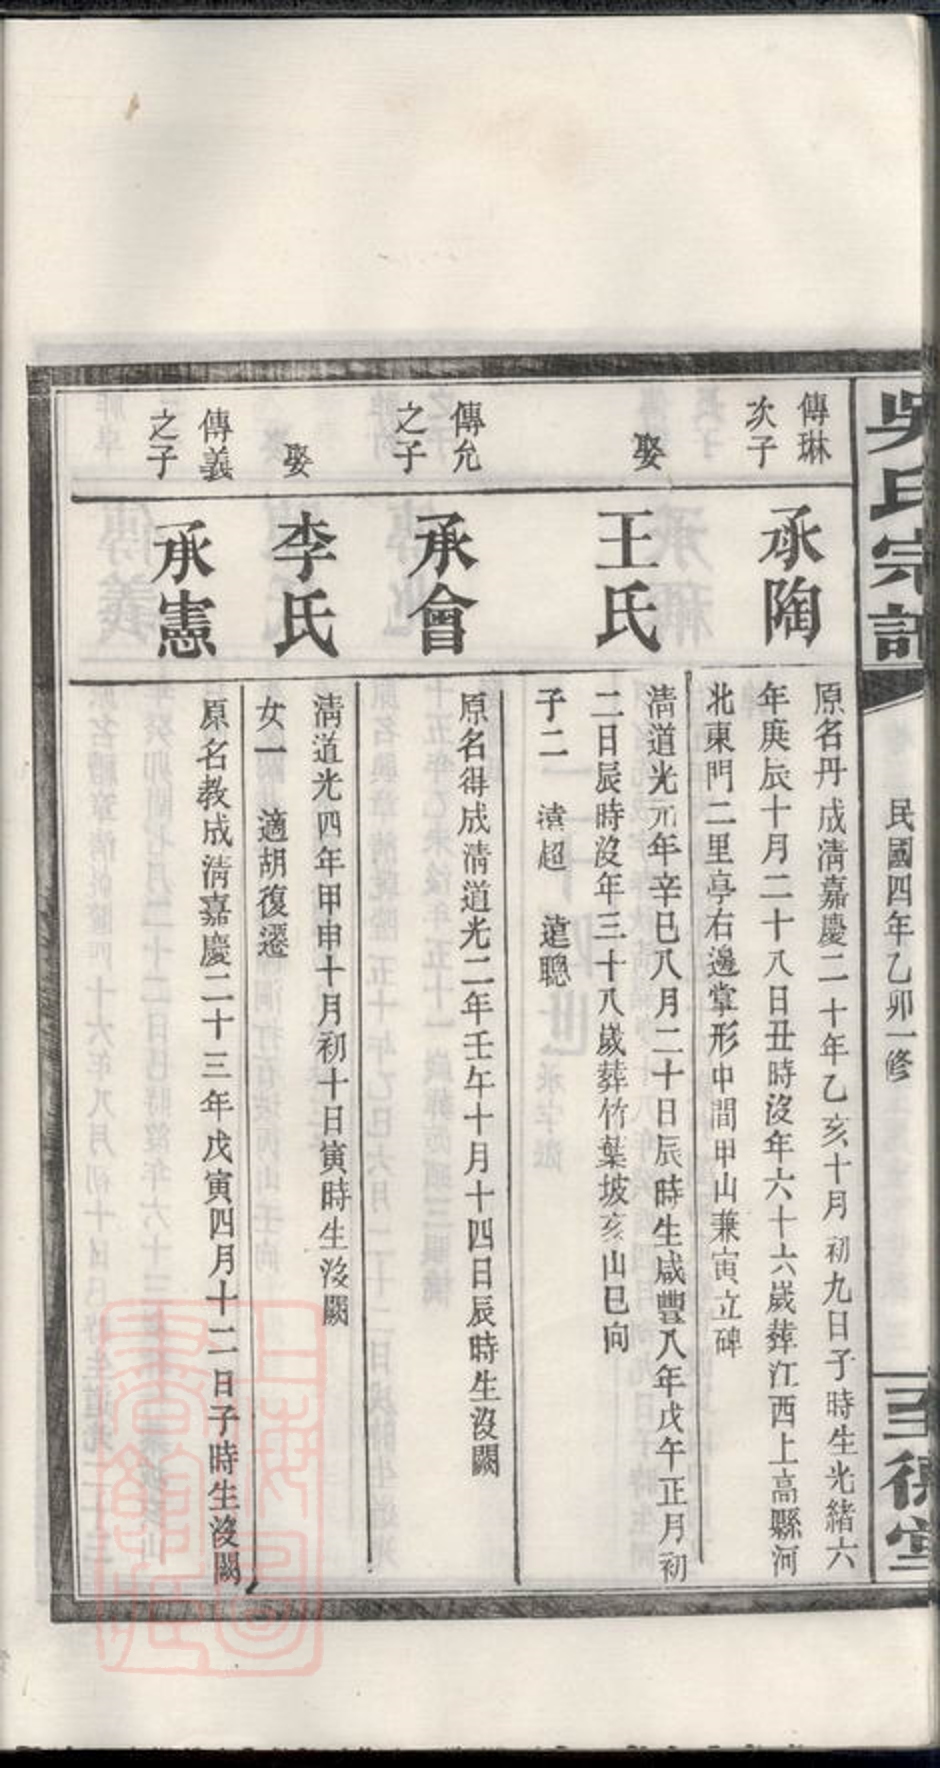 吳氏宗譜
民國四年乙卯一修
三德堂
傳琳
次子
承陶
原名丹成清嘉慶二十年乙亥十月初九日子時生光緒六
年庚辰十月二十八日丑時沒年六十六歲葬江西上高縣河
北東門二里亭右邊掌形中間甲山兼寅立碑
娶
王氏
清道光元年辛巳八月二十日辰時生咸豐八年戊午正月初
二日辰時沒年三十八歲葬竹葉坡亥山巳向
子二 遠超 遠聰
傳允
之子
承會
原名得成清道光二年壬午十月十四日辰時生沒闕
娶
李氏
清道光四年甲申十月初十日寅時生沒闕
女一 適胡復遷
傳義
之子
承憲
原名教成清嘉慶二十三年戊寅四月十二日子時生沒闕